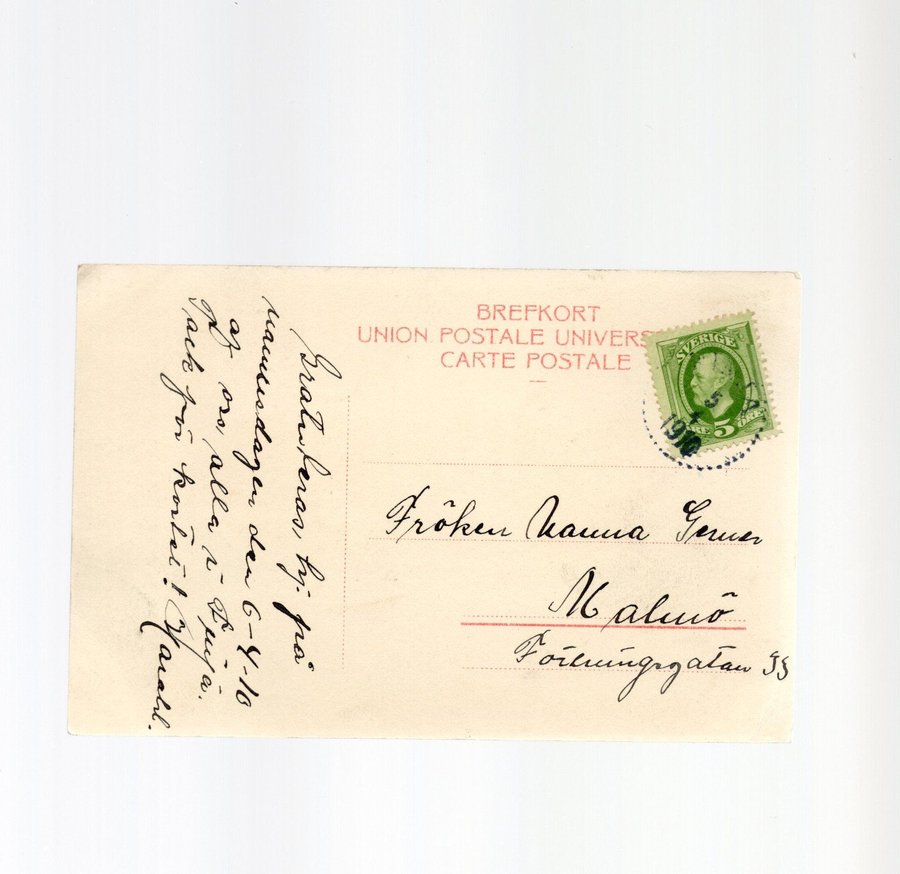 BREFKORT
UNION POSTALE UNIVERS
CARTE POSTALE
SVERIGE
5 ÖRE
5
4
1910
Fröken Nanna
Malmö
Föreningsgatan
Gratuleras, hj: på
namnsdagen den 6-4-10
af oss alla i Finja.
Tack för kortet! Harald.